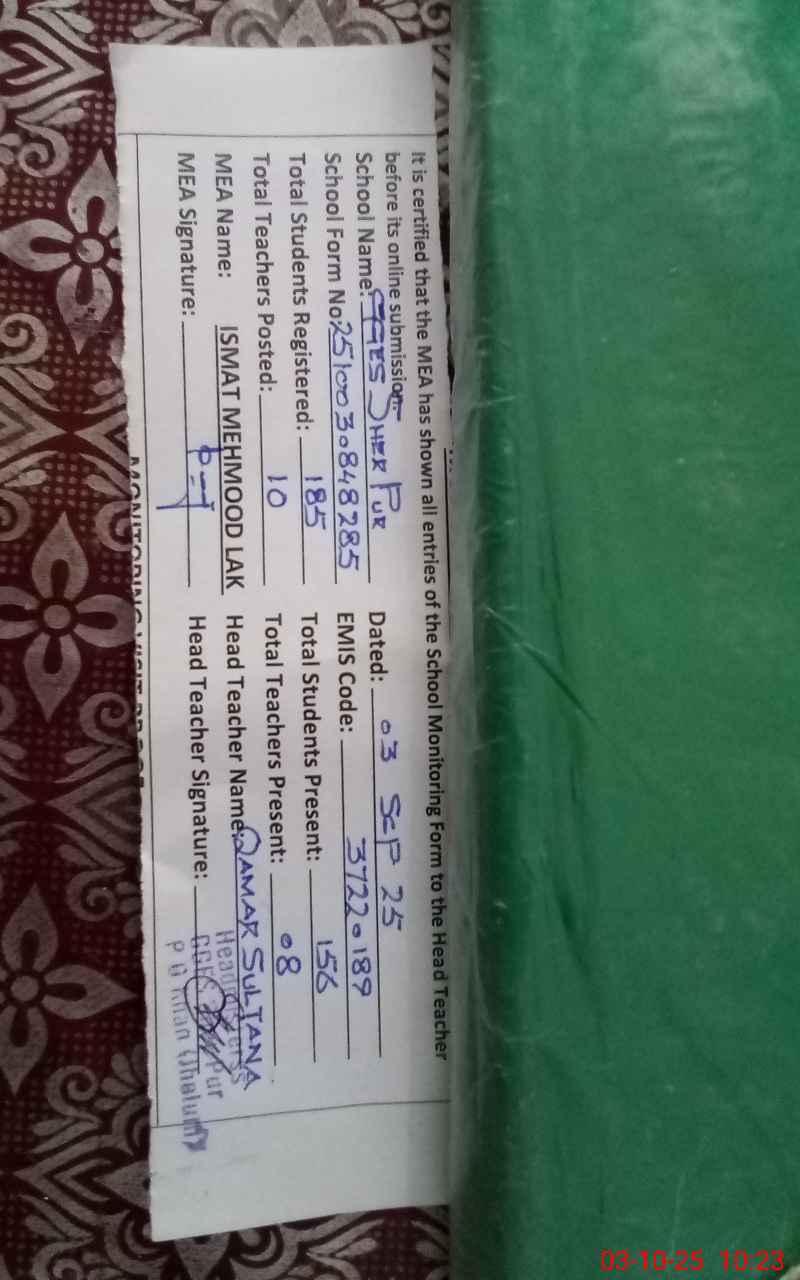 It is certified that the MEA has shown all entries of the School Monitoring Form to the Head Teacher
before its online submission.
School Name: GGES SHER PUR Dated: 03 SEP 25
School Form No: 2510030848285 EMIS Code: 37220189
Total Students Registered: 185 Total Students Present: 156
Total Teachers Posted: 10 Total Teachers Present: 08
MEA Name: ISMAT MEHMOOD LAK Head Teacher Name: QAMAR SULTANA
MEA Signature: Head Teacher Signature:
GGES Pur
P D Khan (Jhelum)
MONITORING VISIT
03-10-25 10:23